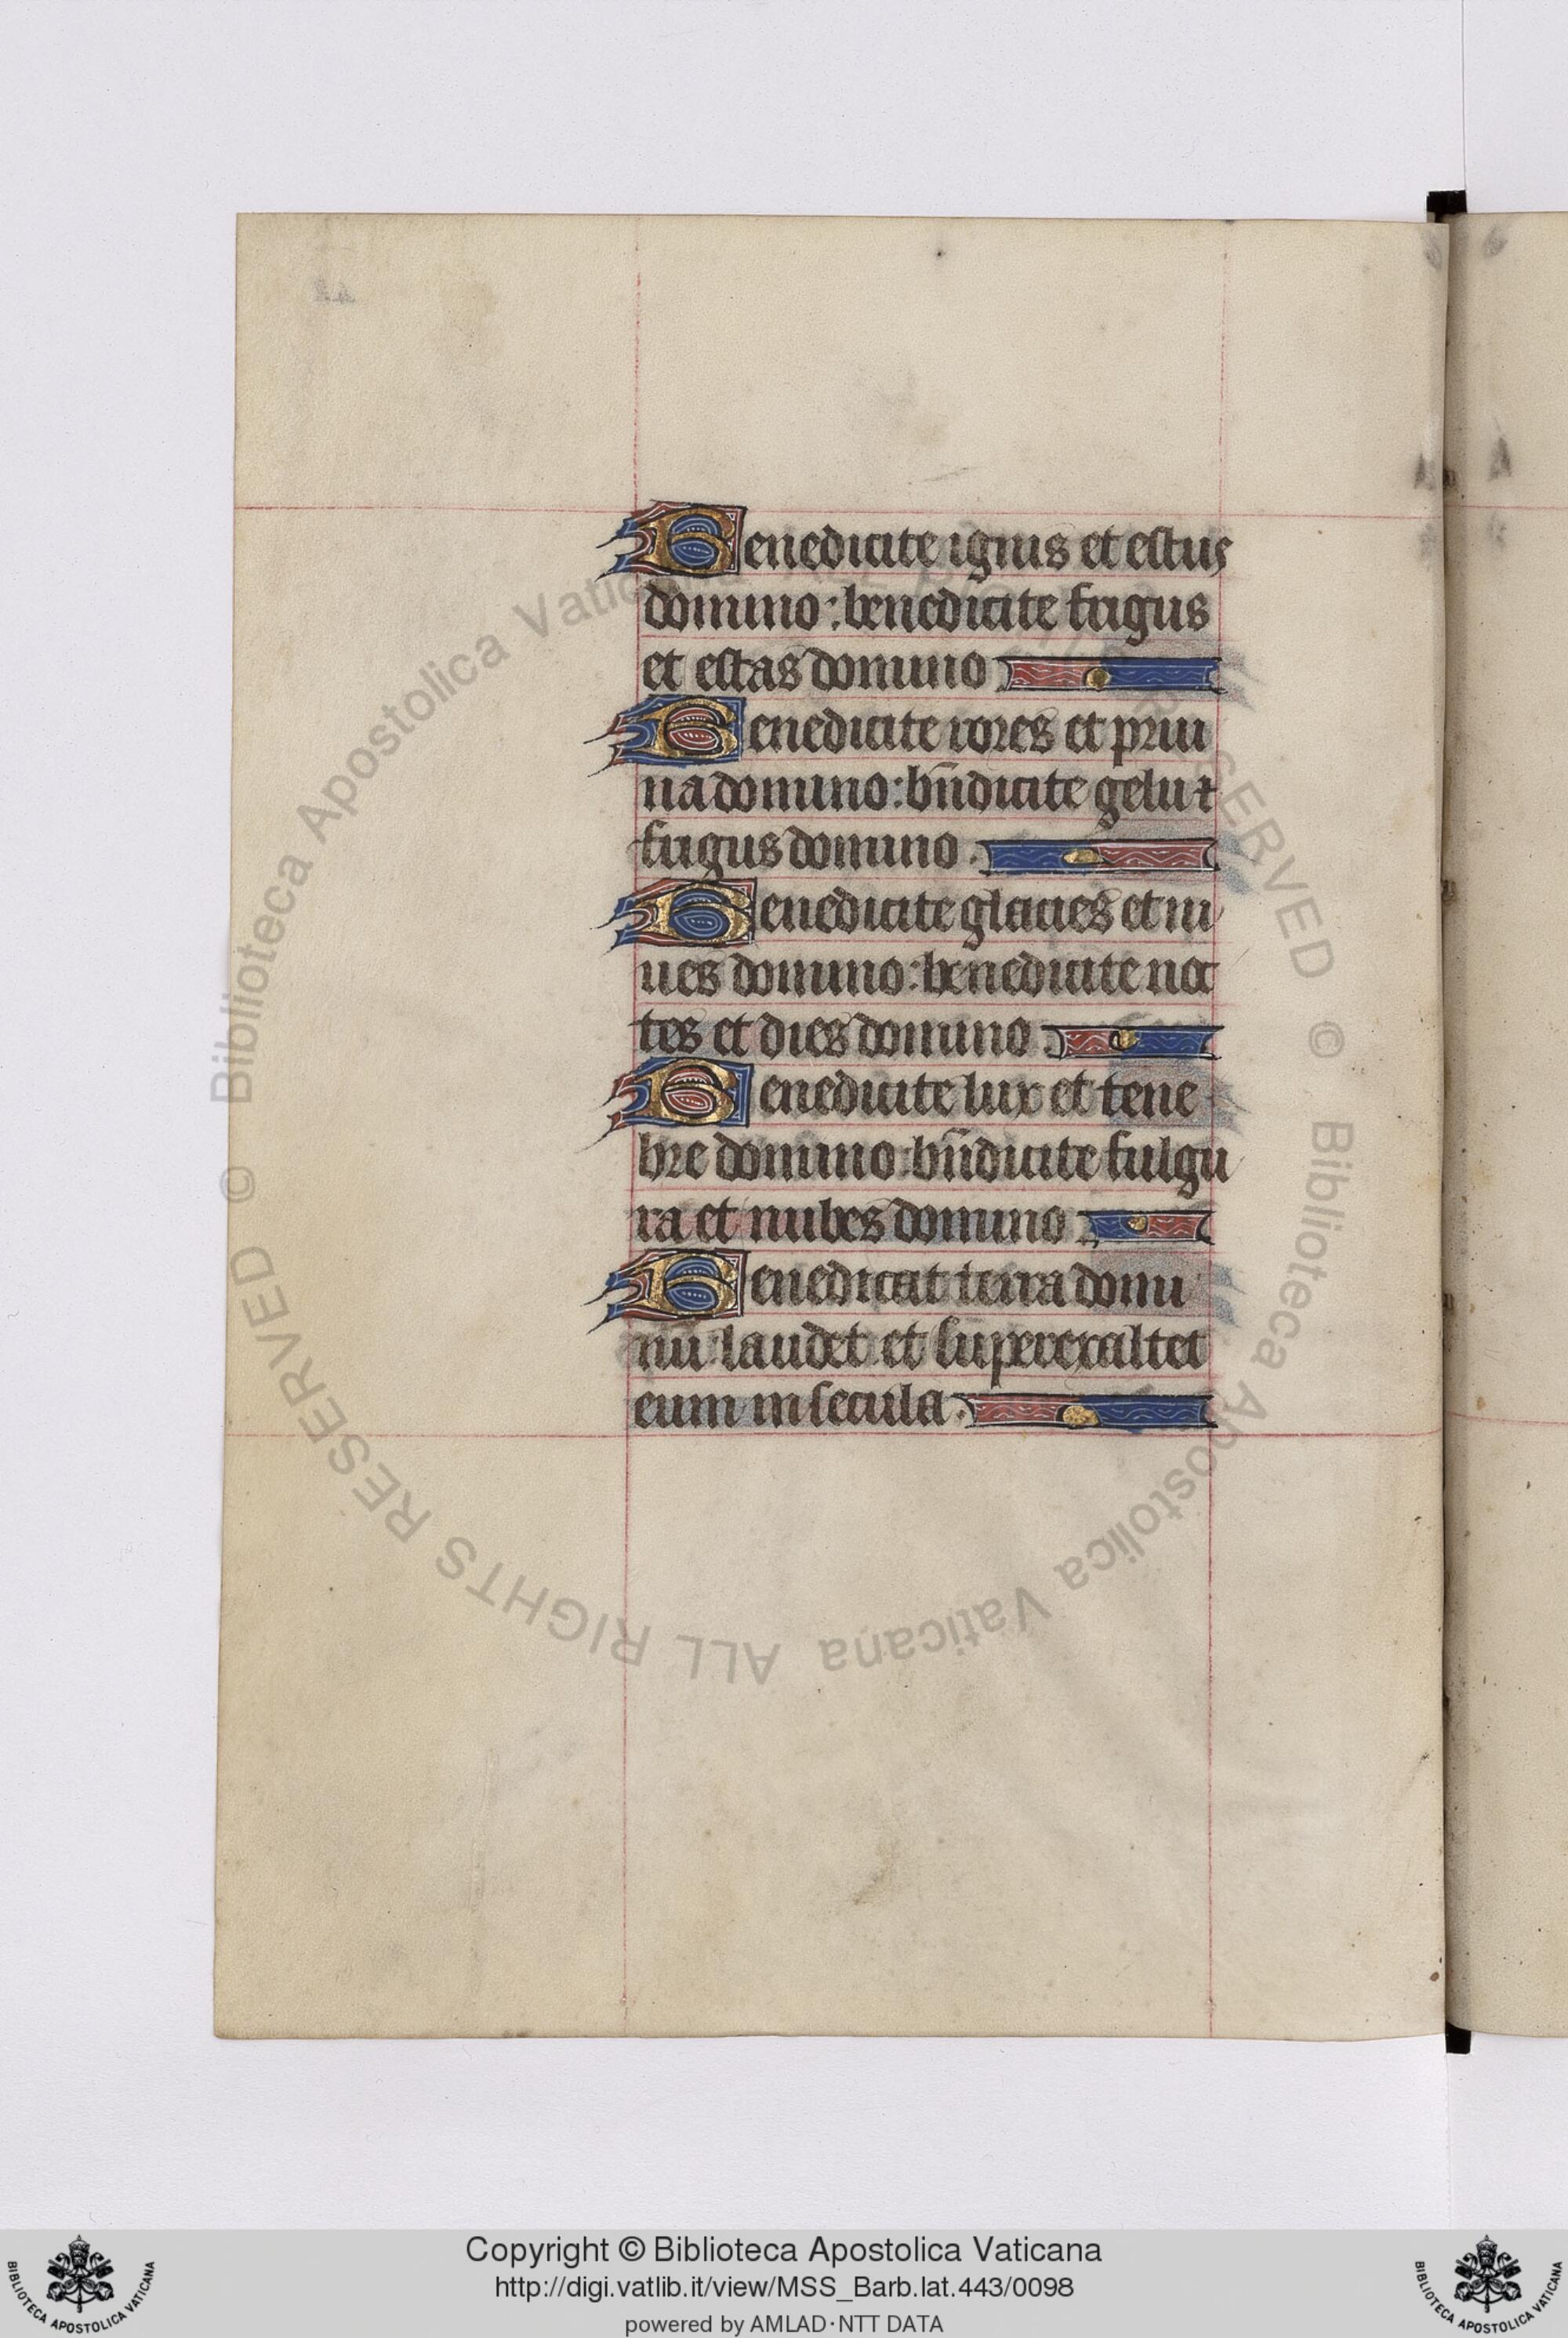 Benedicite ignis et estus
domino: benedicite frigus
et estas domino
Benedicite rores et prui
na domino: bn̄dicite gelu ⁊
frigus domino.
Benedicite glacies et ni
ues domino: benedicite noc
tes et dies domino.
Benedicite lux et tene
bre domino: bn̄dicite fulgu
ra et nubes domino.
Benedicat terra domi
nū: laudet et superexaltet
eum in secula.
© Biblioteca Apostolica Vaticana ALL RIGHTS RESERVED © Biblioteca Apostolica Vaticana ALL RIGHTS RESERVED
Copyright © Biblioteca Apostolica Vaticana
http://digi.vatlib.it/view/MSS_Barb.lat.443/0098
powered by AMLAD·NTT DATA
BIBLIOTECA APOSTOLICA VATICANA
BIBLIOTECA APOSTOLICA VATICANA